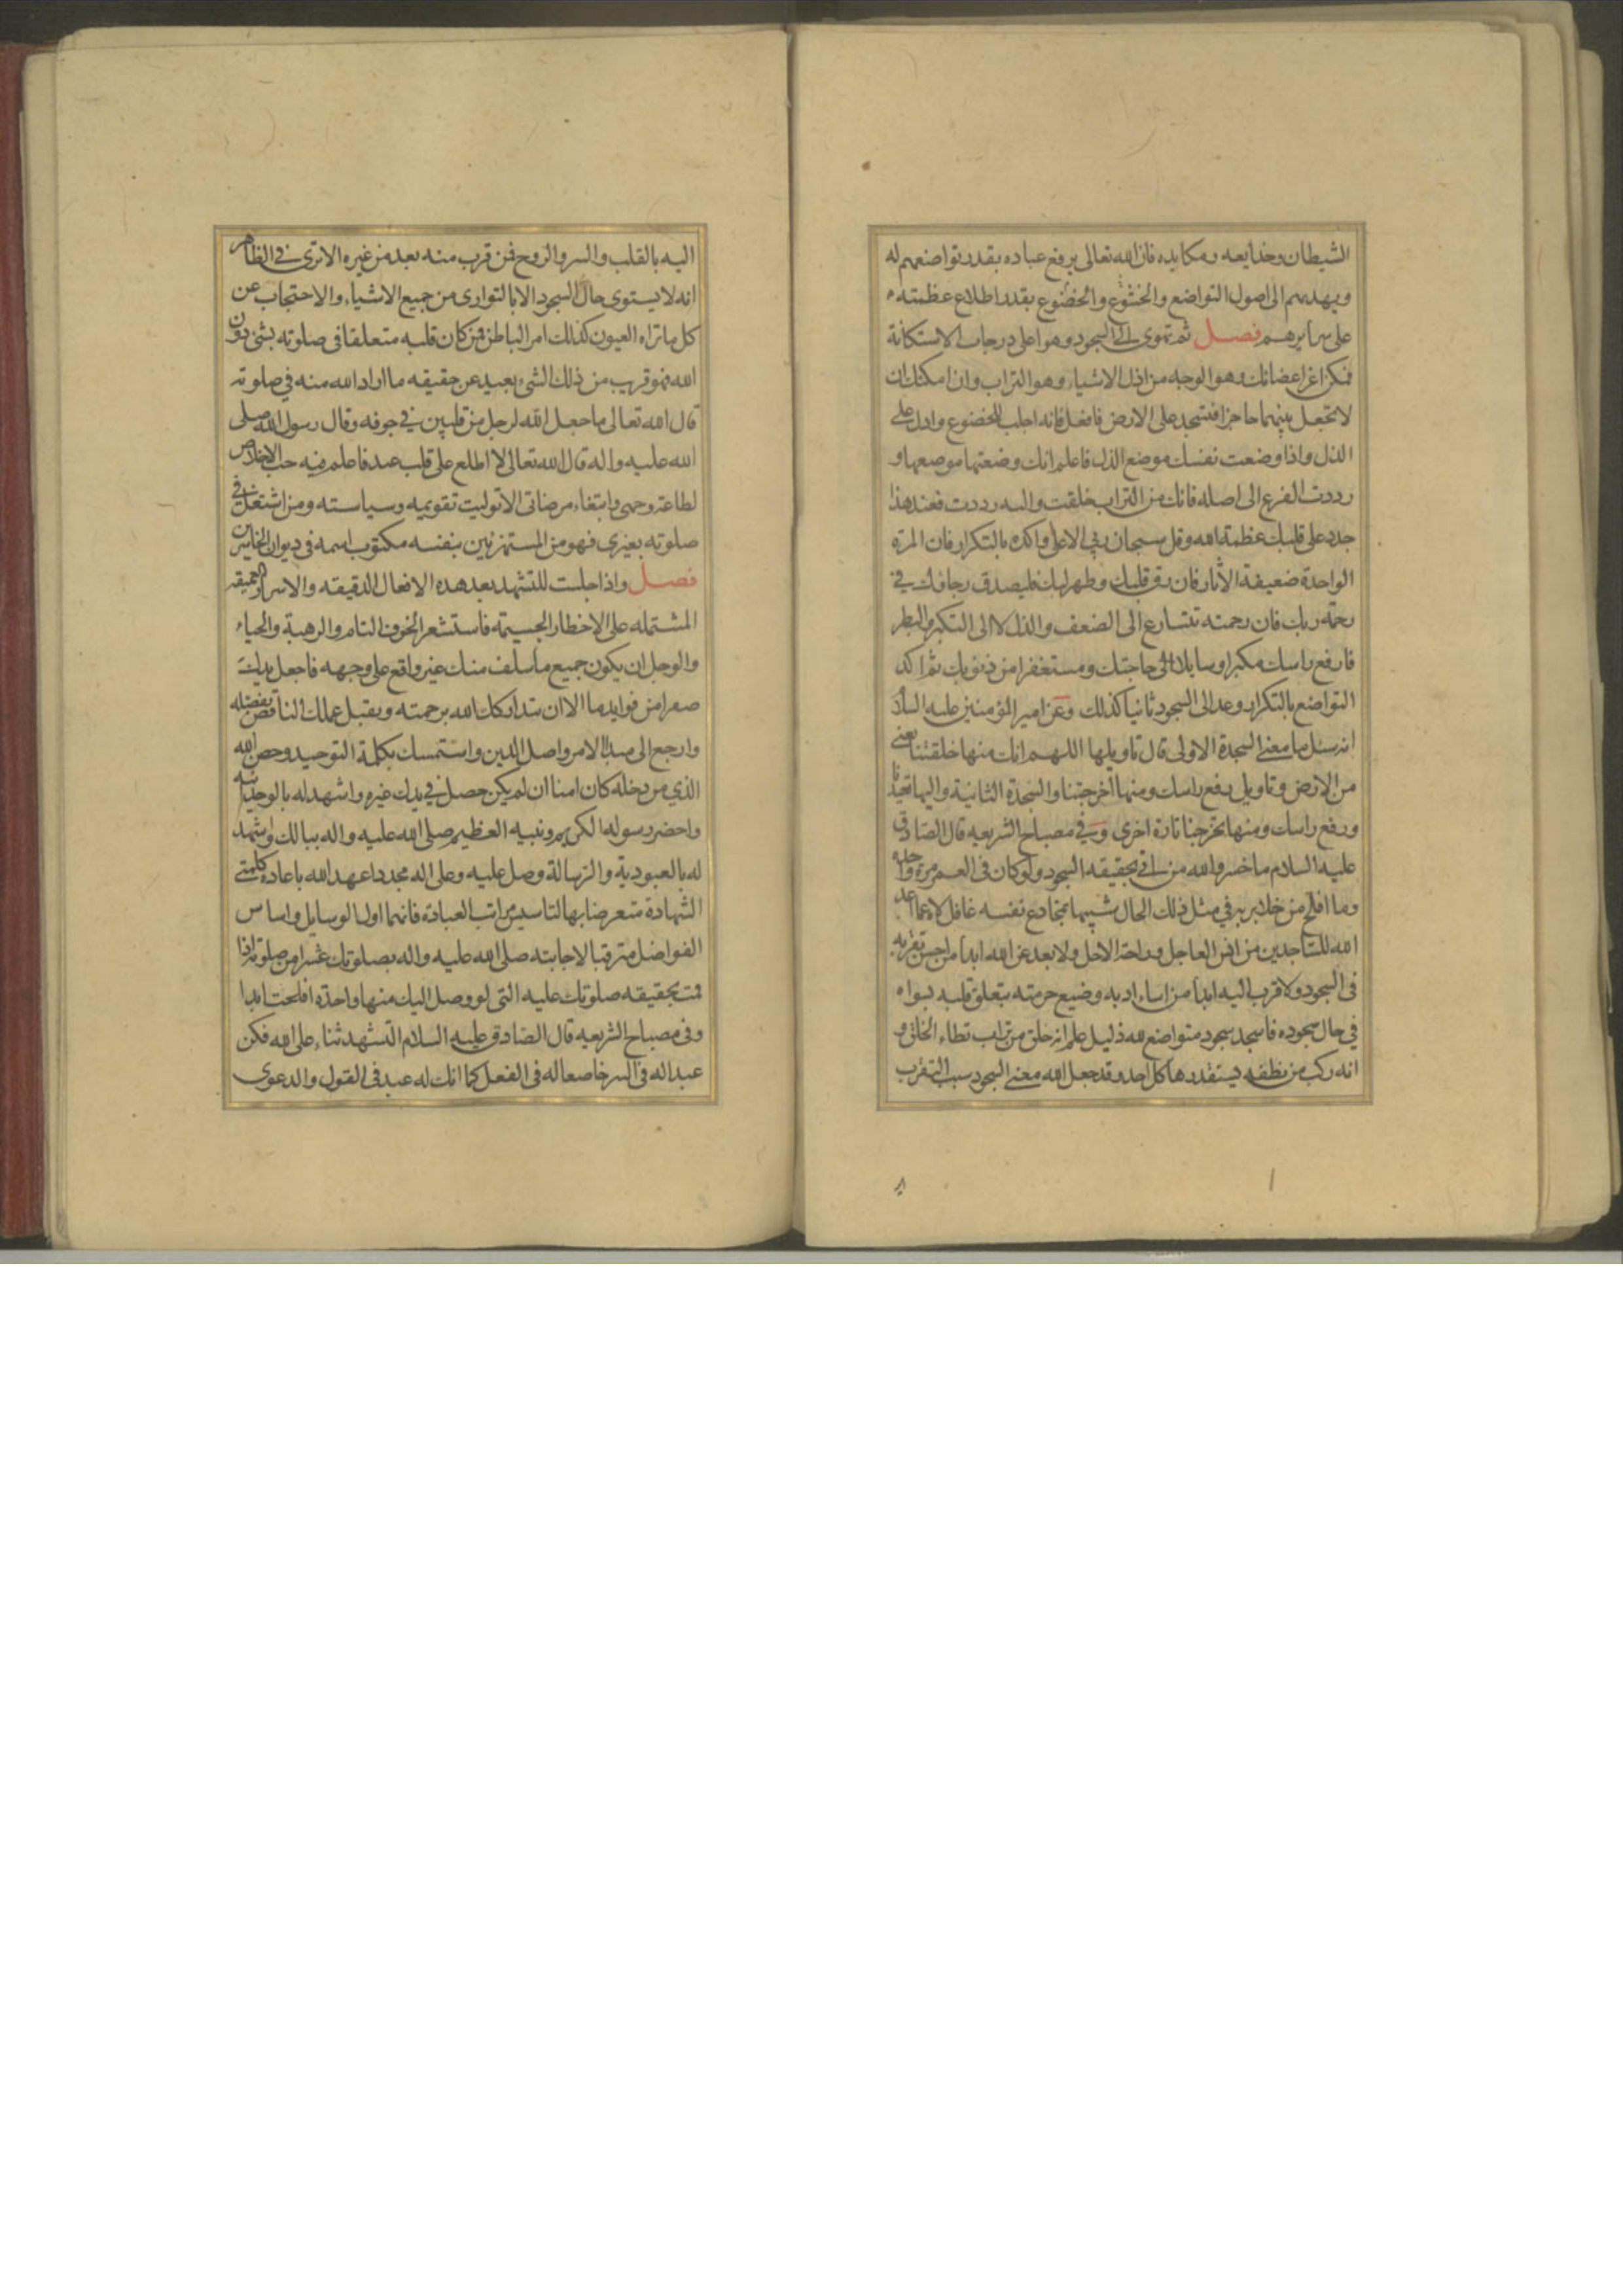 الشيطان وخدايعه ومكايده فان الله تعالى يرفع عباده بقدر تواضعهم له
ويهديهم الى اصول التواضع والخشوع والخضوع بقدر اطلاع عظمته
على سرايرهم فصل ثم تهوى الى السجود وهو اعلى درجات الاستكانة
فمكن اعز اعضائك وهو الوجه من اذل الاشياء وهو التراب وان امكنك ان
لا تجعل بينهما حاجزا فتسجد على الارض فافعل فانه اجلب للخضوع وادل على
الذل واذا وضعت نفسك موضع الذل فاعلم انك وضعتها موضعها و
رددت الفرع الى اصله فانك من التراب خلقت واليه رددت فعند هذا
جدد على قلبك عظمة الله وقل سبحان ربي الاعلى واكده بالتكرار فان المرة
الواحدة ضعيفة الآثار فان رق قلبك وطهر لبك فليصدق رجاؤك في
رحمة ربك فان رحمته تتسارع الى الضعف والذل لا الى التكبر والبطر
فارفع راسك مكبرا وسايلا حاجتك ومستغفرا من ذنوبك ثم اكد
التواضع بالتكرار وعد الى السجود ثانيا كذلك وعن امير المؤمنين عليه السلام
انه سئل ما معنى السجدة الاولى قال تاويلها اللهم انك منها خلقتنا يعنى
من الارض وتاويل رفع راسك ومنها اخرجتنا والسجدة الثانية واليها تعيدنا
ورفع راسك ومنها تخرجنا تارة اخرى وفي مصباح الشريعه قال الصادق
عليه السلام ما خسر والله من اتى بحقيقه السجود ولو كان في العمر مرة واحدة
وما افلح من خلا بربه في مثل ذلك الحال شبيها بمخادع نفسه غافل لاه عما اعد
الله للساجدين من انس العاجل وراحة الاجل ولا بعد عن الله ابدا من احسن تقربه
في السجود ولا قرب اليه ابدا من اساء ادبه وضيع حرمته بتعلق قلبه بسواه
في حال سجوده فاسجد سجود متواضع لله ذليل علم انه خلق من تراب تطاه الخلق و
انه ركب من نطفه يستقذرها كل احد وقد جعل الله معنى السجود سبب التقرب
اليه بالقلب والسر والروح فمن قرب منه بعد من غيره الا ترى في الظاهر
انه لا يستوى حال السجود الا بالتوارى من جميع الاشياء والاحتجاب عن
كل ما تراه العيون كذلك امر الباطن فمن كان قلبه متعلقا في صلوته بشئ دون
الله فهو قريب من ذلك الشئ بعيد عن حقيقه ما اراد الله منه في صلوته
قال الله تعالى ما جعل الله لرجل من قلبين في جوفه وقال رسول الله صلى
الله عليه واله قال الله تعالى لا اطلع على قلب عبد فاعلم فيه حب الاخلاص
لطاعة وجهى وابتغاء مرضاتى الا توليت تقويمه وسياسته ومن اشتغل في
صلوته بغيرى فهو من المستهزئين بنفسه مكتوب اسمه في ديوان الخاسرين
فصل واذا جلست للتشهد بعد هذه الافعال الدقيقه والاسرار العميقه
المشتمله على الاخطار الجسيمة فاستشعر الخوف التام والرهبة والحياء
والوجل ان يكون جميع ما سلف منك غير واقع على وجهه فاجعل يدك
صفرا من فوايدها الا ان يتداركك الله برحمته ويقبل عملك الناقص بفضله
وارجع الى مبدا الامر واصل الدين واستمسك بكلمة التوحيد وحصن الله
الذي من دخله كان امنا ان لم يكن حصل في يدك غيره واشهد له بالوحدانيه
واحضر رسوله الكريم ونبيه العظيم صلى الله عليه واله ببالك واشهد
له بالعبودية والرسالة وصل عليه وعلى اله مجددا عهد الله باعادة كلمتى
الشهادة متعرضا بها لتاسيس مراتب العبادة فانهما اول الوسايل واساس
الفواضل مترقبا لاجابته صلى الله عليه واله بصلوتك عشرا من صلوته اذا
قمت بحقيقه صلوتك عليه التى لو وصل اليك منها واحدة افلحت ابدا
وفى مصباح الشريعه قال الصادق عليه السلام التشهد ثناء على الله فكن
عبدا له في السر خاضعا له في الفعل كما انك له عبد في القول والدعوى